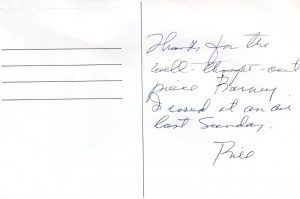 Thanks for the
well-thought-out
piece Barney
I used it on air
last Sunday.
Bill